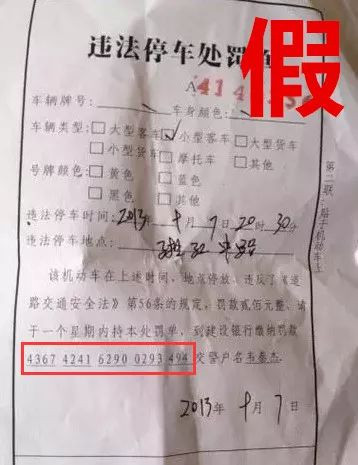 违法停车处罚
假
A414
车辆牌号: 车身颜色:
车辆类型: 大型客车 小型客车 大型货车
小型货车 摩托车 其他
号牌颜色: 黄色 蓝色
黑色 其他
违法停车时间: 2013年 9月 7日 20时 30分
违法停车地点:
该机动车在上述时间、地点停放,违反了《道
路交通安全法》第56条的规定,罚款贰佰元整,请
于一个星期内持本处罚单,到建设银行缴纳罚款
4367 4241 6290 0293 494 交警户名韦泰杰.
2013年 9月 7日
第二联:贴于机动车上